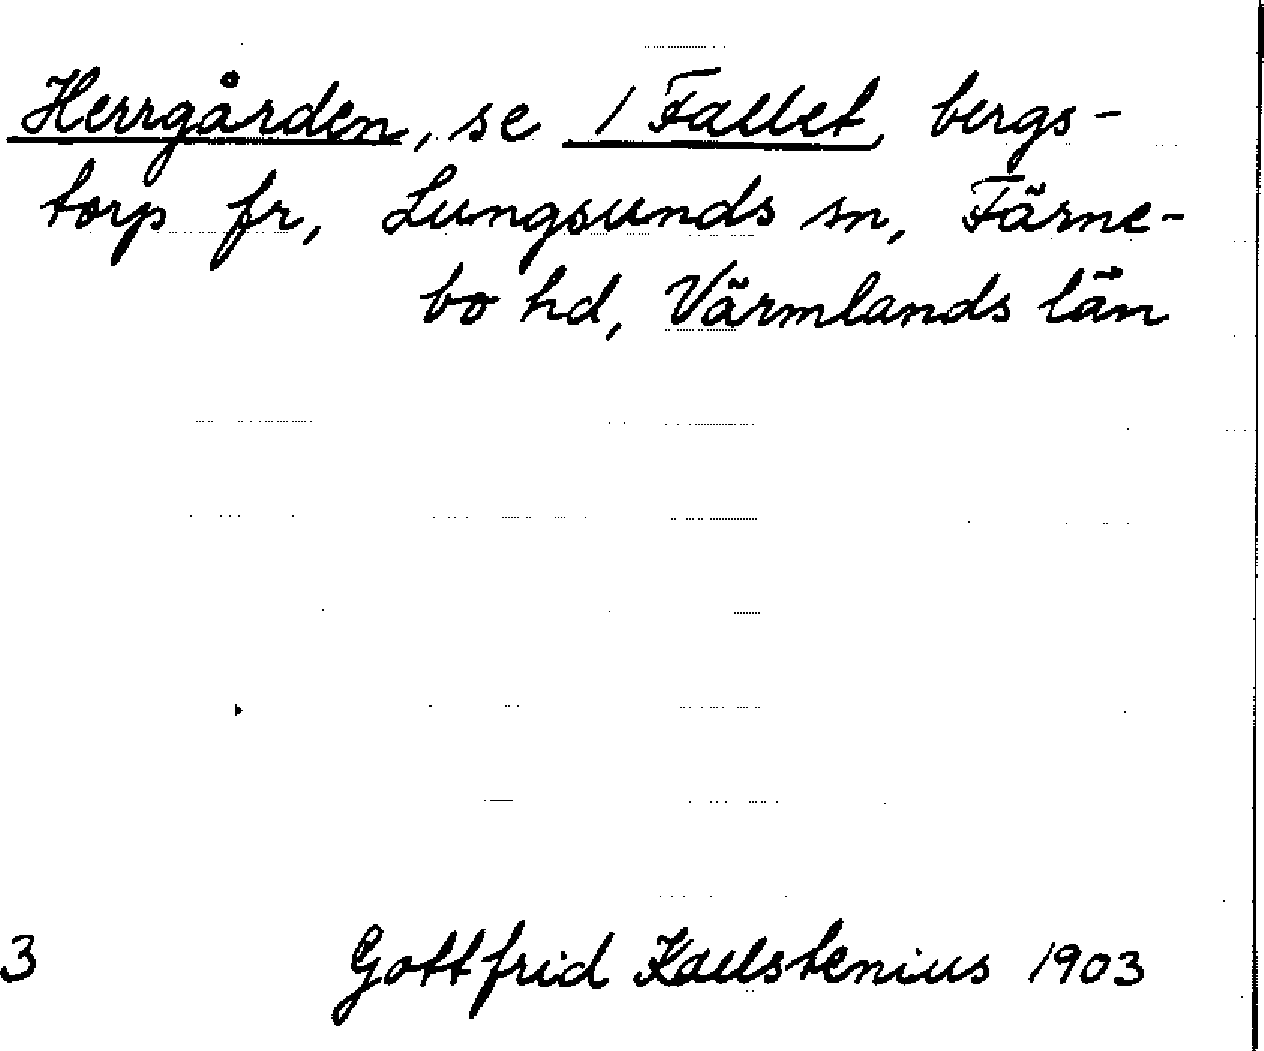 Herrgården, se 1 Fallet, bergs-
torp fr, Lungsunds sn, Färne-
bo hd, Värmlands län
3 Gottfrid Kallstenius 1903